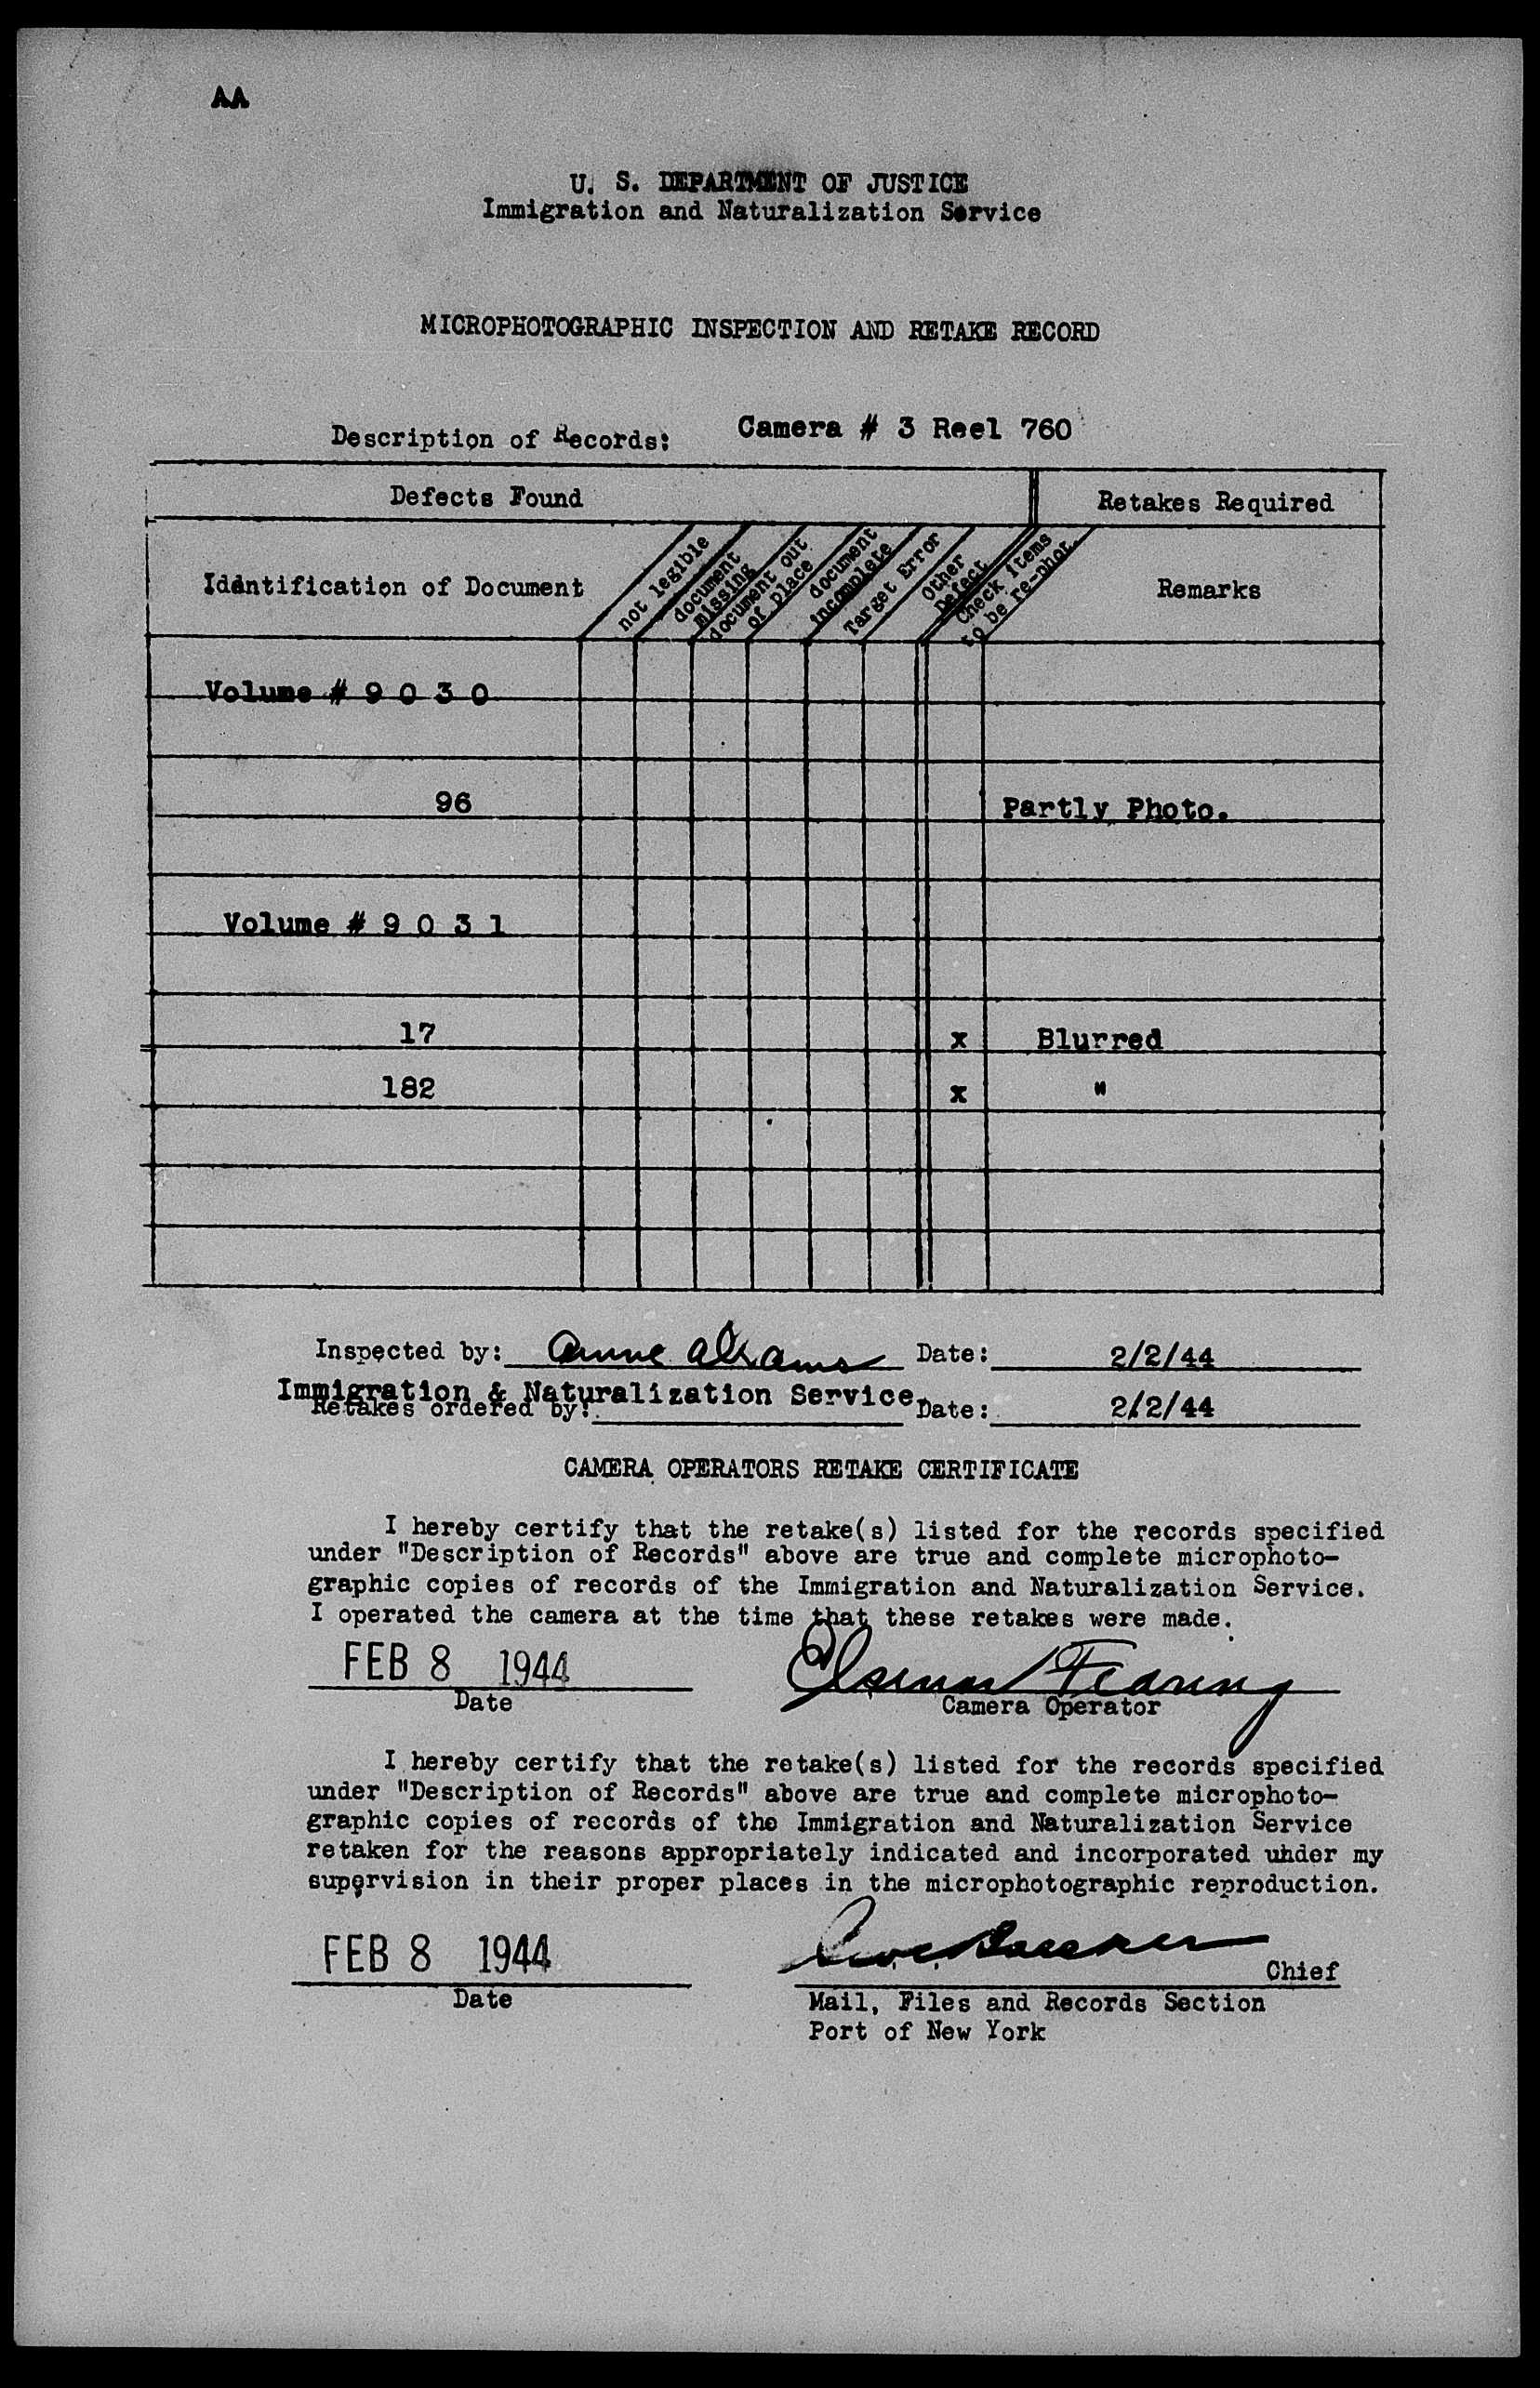 AA
U. S. DEPARTMENT OF JUSTICE
Immigration and Naturalization Service
MICROPHOTOGRAPHIC INSPECTION AND RETAKE RECORD
Description of Records: Camera # 3 Reel 760
Defects Found Retakes Required
Identification of Document
not legible
document missing
document out of place
document incomplete
Target Error
Other Defect
Check Items to be re-phot.
Remarks
Volume # 9 0 3 0
96 Partly Photo.
Volume # 9 0 3 1
17 x Blurred
182 x "
Inspected by: Anne Abrams Date: 2/2/44
Immigration & Naturalization Service.
Retakes ordered by: Date: 2/2/44
CAMERA OPERATORS RETAKE CERTIFICATE
I hereby certify that the retake(s) listed for the records specified
under "Description of Records" above are true and complete microphoto-
graphic copies of records of the Immigration and Naturalization Service.
I operated the camera at the time that these retakes were made.
FEB 8 1944
Date Camera Operator
I hereby certify that the retake(s) listed for the records specified
under "Description of Records" above are true and complete microphoto-
graphic copies of records of the Immigration and Naturalization Service
retaken for the reasons appropriately indicated and incorporated under my
supervision in their proper places in the microphotographic reproduction.
FEB 8 1944
Chief
Date Mail, Files and Records Section
Port of New York